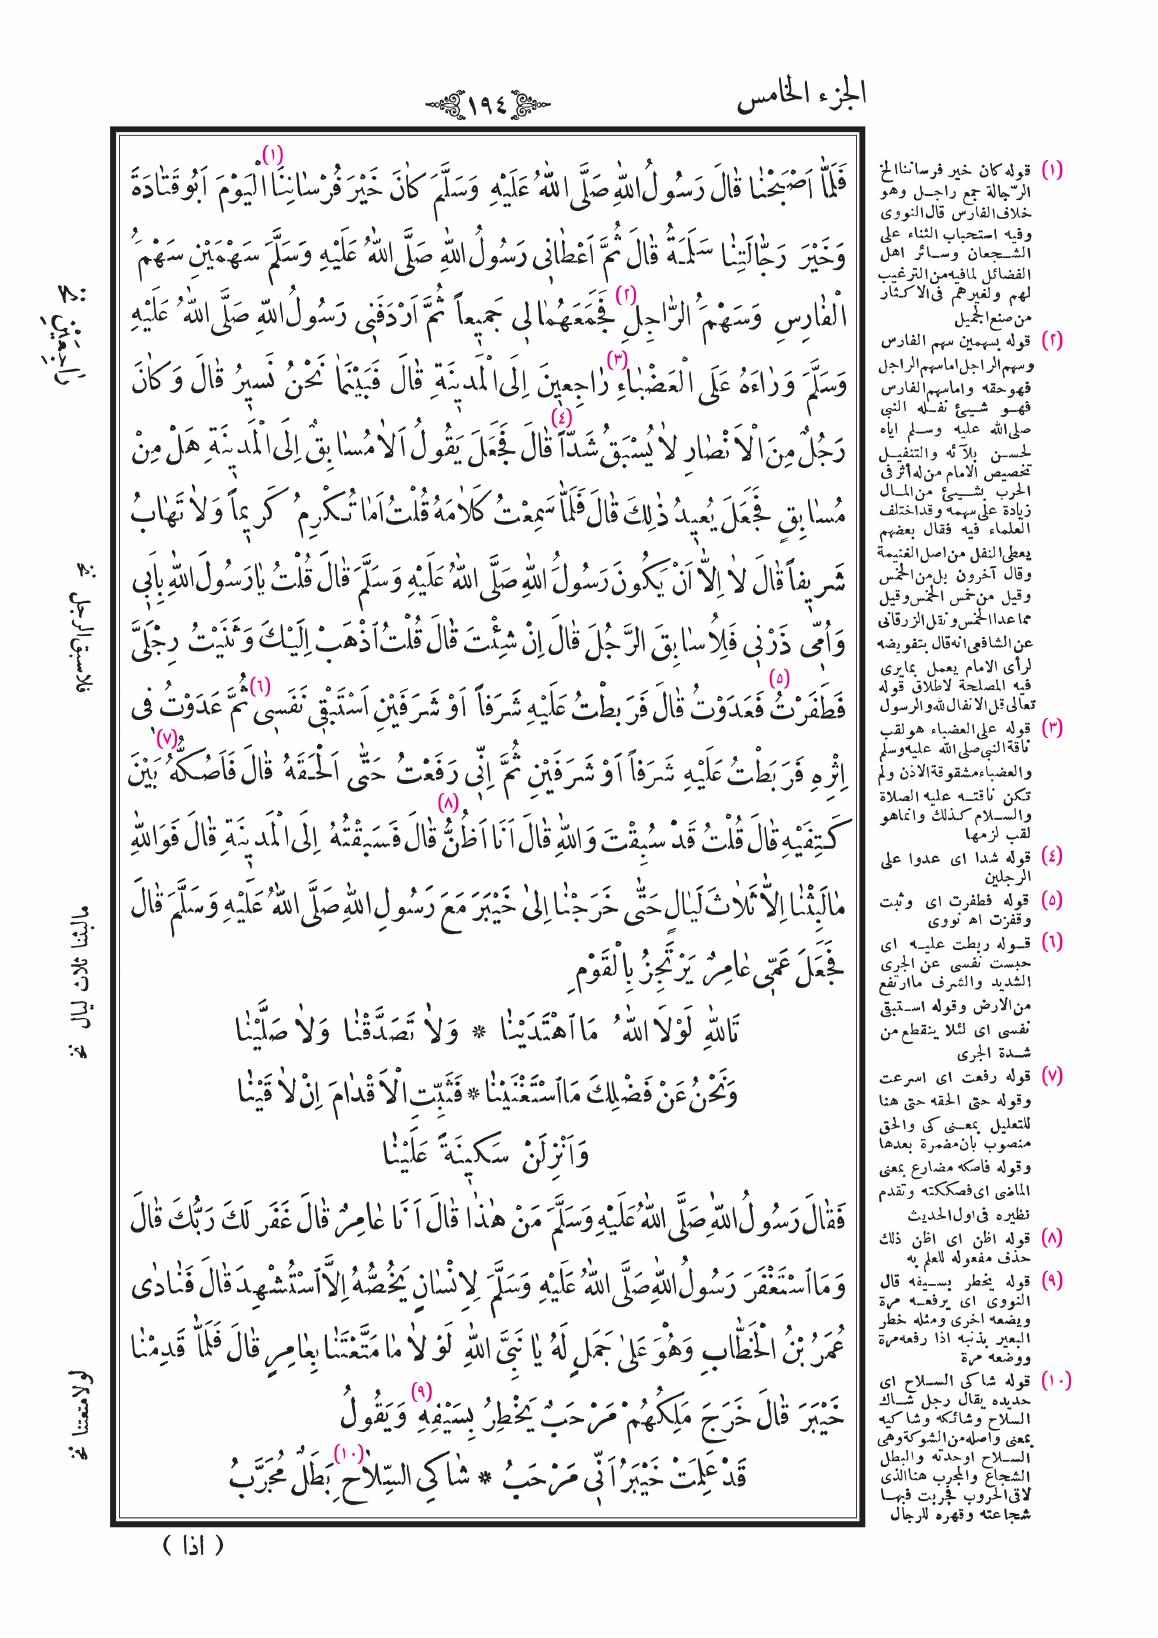 الجزء الخامس
١٩٤
فَلَمَّا اَصْبَحْنَا قَالَ رَسُولُ اللّٰهِ صَلَّى اللّٰهُ عَلَيْهِ وَسَلَّمَ كَانَ خَيْرَ فُرْسَانِنَا (١) الْيَوْمَ اَبُو قَتَادَةَ
وَخَيْرَ رَجَّالَتِنَا سَلَمَةُ قَالَ ثُمَّ اَعْطَانِى رَسُولُ اللّٰهِ صَلَّى اللّٰهُ عَلَيْهِ وَسَلَّمَ سَهْمَيْنِ سَهْمَُ
الْفَارِسِ وَسَهْمَُ الرَّاجِلِ (٢) فَجَمَعَهُمَا لِى جَمِيعاً ثُمَّ اَرْدَفَنِى رَسُولُ اللّٰهِ صَلَّى اللّٰهُ عَلَيْهِ
وَسَلَّمَ وَرَاءَهُ عَلَى الْعَضْبَاءِ (٣) رَاجِعِينَ اِلَى الْمَدِينَةِ قَالَ فَبَيْنَمَا نَحْنُ نَسِيرُ قَالَ وَكَانَ
رَجُلٌ مِنَ الْاَنْصَارِ لَا يُسْبَقُ شَدًّا (٤) قَالَ فَجَعَلَ يَقُولُ اَلَا مُسَابِقٌ اِلَى الْمَدِينَةِ هَلْ مِنْ
مُسَابِقٍ فَجَعَلَ يُعِيدُ ذٰلِكَ قَالَ فَلَمَّا سَمِعْتُ كَلَامَهُ قُلْتُ اَمَا تُكْرِمُ كَرِيماً وَلَا تَهَابُ
شَرِيفاً قَالَ لَا اِلَّا اَنْ يَكُونَ رَسُولَُ اللّٰهِ صَلَّى اللّٰهُ عَلَيْهِ وَسَلَّمَ قَالَ قُلْتُ يَا رَسُولَ اللّٰهِ بِاَبِى
وَاُمِّى ذَرْنِى فَلِاُسَابِقَ الرَّجُلَ قَالَ اِنْ شِئْتَ قَالَ قُلْتُ اَذْهَبْ اِلَيْكَ وَثَنَيْتُ رِجْلَىَّ
فَطَفَرْتُ (٥) فَعَدَوْتُ قَالَ فَرَبَطْتُ عَلَيْهِ شَرَفاً اَوْ شَرَفَيْنِ اَسْتَبْقِى نَفَسِى (٦) ثُمَّ عَدَوْتُ فِى
اِثْرِهِ فَرَبَطْتُ عَلَيْهِ شَرَفاً اَوْ شَرَفَيْنِ ثُمَّ اِنِّى رَفَعْتُ حَتَّى اَلْحَقَهُ قَالَ فَاَصُكُّهُ (٧) بَيْنَ
كَتِفَيْهِ قَالَ قُلْتُ قَدْ سُبِقْتَ وَاللّٰهِ قَالَ اَنَا اَظُنُّ (٨) قَالَ فَسَبَقْتُهُ اِلَى الْمَدِينَةِ قَالَ فَوَاللّٰهِ
مَا لَبِثْنَا اِلَّا ثَلَاثَ لَيَالٍ حَتَّى خَرَجْنَا اِلىٰ خَيْبَرَ مَعَ رَسُولِ اللّٰهِ صَلَّى اللّٰهُ عَلَيْهِ وَسَلَّمَ قَالَ
فَجَعَلَ عَمِّى عَامِرٌ يَرْتَجِزُ بِالْقَوْمِ
تَاللّٰهِ لَوْلَا اللّٰهُ مَا اهْتَدَيْنَا * وَلَا تَصَدَّقْنَا وَلَا صَلَّيْنَا
وَنَحْنُ عَنْ فَضْلِكَ مَا اسْتَغْنَيْنَا * فَثَبِّتِ الْاَقْدَامَ اِنْ لَاقَيْنَا
وَاَنْزِلَنْ سَكِينَةً عَلَيْنَا
فَقَالَ رَسُولُ اللّٰهِ صَلَّى اللّٰهُ عَلَيْهِ وَسَلَّمَ مَنْ هٰذَا قَالَ اَنَا عَامِرٌ قَالَ غَفَرَ لَكَ رَبُّكَ قَالَ
وَمَا اسْتَغْفَرَ رَسُولُ اللّٰهِ صَلَّى اللّٰهُ عَلَيْهِ وَسَلَّمَ لِاِنْسَانٍ يَخُصُّهُ اِلَّا اسْتُشْهِدَ قَالَ فَنَادٰى
عُمَرُ بْنُ الْخَطَّابِ وَهُوَ عَلىٰ جَمَلٍ لَهُ يَا نَبِىَّ اللّٰهِ لَوْلَا مَا مَتَّعْتَنَا بِعَامِرٍ قَالَ فَلَمَّا قَدِمْنَا
خَيْبَرَ قَالَ خَرَجَ مَلِكُهُمْ مَرْحَبٌ يَخْطِرُ بِسَيْفِهِ (٩) وَيَقُولُ
قَدْ عَلِمَتْ خَيْبَرُ اَنِّى مَرْحَبُ * شَاكِى السِّلَاحِ (١٠) بَطَلٌ مُجَرَّبُ
( اذا )
(١) قوله كان خير فرساننا الخ
الرّجالة جمع راجل وهو
خلاف الفارس قال النووى
وفيه استحباب الثناء على
الشجعان وسائر اهل
الفضائل لما فيه من الترغيب
لهم ولغيرهم فى الاكثار
من صنع الجميل
(٢) قوله بسهمين سهم الفارس
وسهم الراجل اما سهم الراجل
فهو حقه واما سهم الفارس
فهو شيئ نفله النبى
صلى الله عليه وسلم اياه
لحسن بلآئه والتنفيل
تخصيص الامام من له أثر فى
الحرب بشيئ من المال
زيادة على سهمه وقد اختلف
العلماء فيه فقال بعضهم
يعطى النفل من اصل الغنيمة
وقال آخرون بل من الخمس
وقيل من خمس الخمس وقيل
مما عدا الخمس ونقل الزرقانى
عن الشافعى انه قال بتفويضه
لرأى الامام يعمل بما يرى
فيه المصلحة لاطلاق قوله
تعالى قل الانفال لله والرسول
(٣) قوله على العضباء هو لقب
ناقة النبى صلى الله عليه وسلم
والعضباء مشقوقة الاذن ولم
تكن ناقته عليه الصلاة
والسلام كذلك وانما هو
لقب لزمها
(٤) قوله شدا اى عدوا على
الرجلين
(٥) قوله فطفرت اى وثبت
وقفزت اه نووى
(٦) قوله ربطت عليه اى
حبست نفسى عن الجرى
الشديد والشرف ما ارتفع
من الارض وقوله استبقى
نفسى اى لئلا ينقطع من
شدة الجرى
(٧) قوله رفعت اى اسرعت
وقوله حتى الحقه حتى هنا
للتعليل بمعنى كى والحق
منصوب بان مضمرة بعدها
وقوله فاصكه مضارع بمعنى
الماضى اى فصككته وتقدم
نظيره فى اول الحديث
(٨) قوله اظن اى اظن ذلك
حذف مفعوله للعلم به
(٩) قوله يخطر بسيفه قال
النووى اى يرفعه مرة
ويضعه اخرى ومثله خطر
البعير بذنبه اذا رفعه مرة
ووضعه مرة
(١٠) قوله شاكى السلاح اى
حديده يقال رجل شاك
السلاح وشائكه وشاكيه
بمعنى واصله من الشوكة وهى
السلاح او حدته والبطل
الشجاع والمجرب هنا الذى
لاقى الحروب فجربت فيها
شجاعته وقهره للرجال
رَاجِعَيْنِ نخ
فلاسبق الرجل نخ
مالبثنا ثلاث ليال نخ
لولا متعتنا نخ